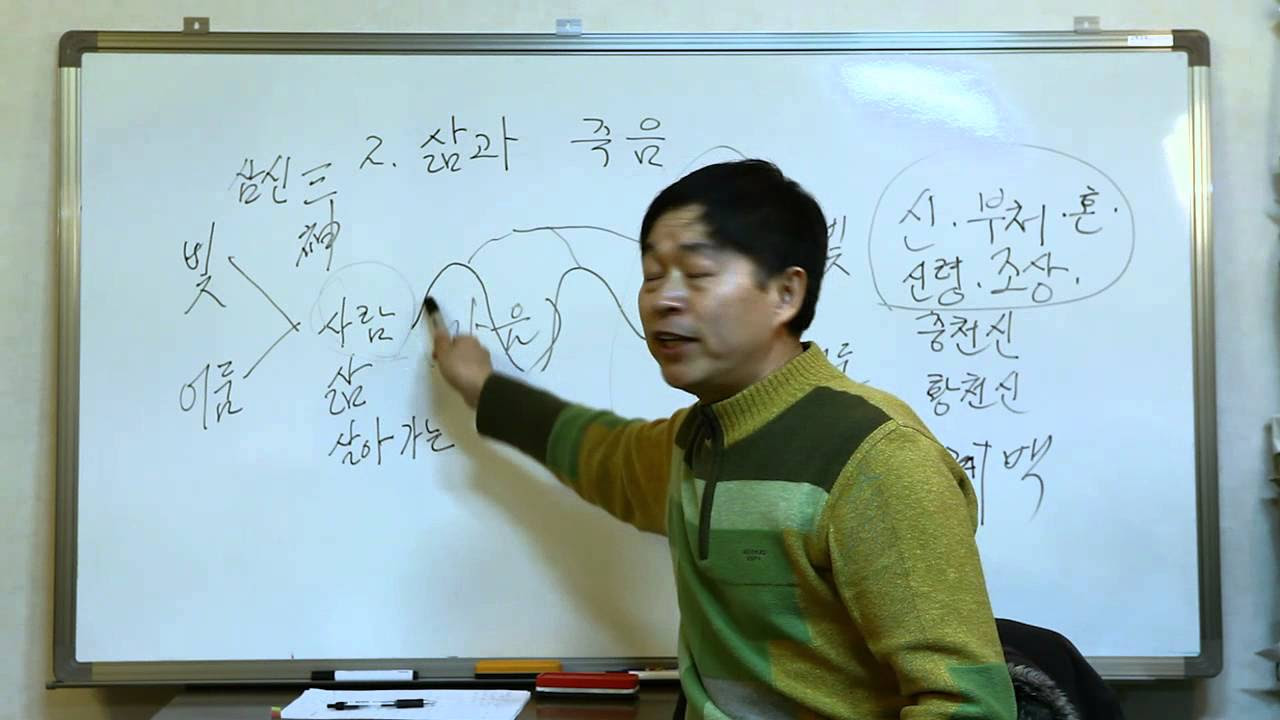 2. 삶과 죽음
삼신 三
神
빛
어둠
사람
삶
살아가는
빛
신·부처·혼·
신령·조상·
중천신
황천신
백